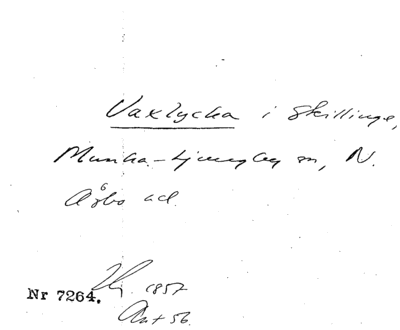 Vaxlycka i Skillinge,
Munka-Ljungby sn, N.
Åsbo hd.
1857
Nr 7264.
Ant 56